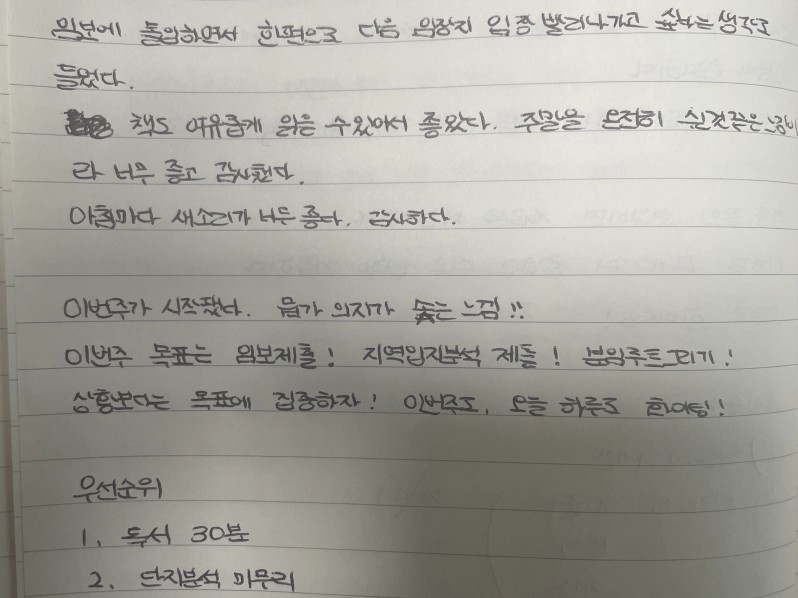 임보에 돌입하면서 한편으로 다음 임장지 임장 빨리나가고 싶다는 생각도
들었다.
책도 여유롭게 읽을 수있어서 좋았다. 주말을 온전히 쉰것같은 느낌이
라 너무 좋고 감사했다.
아침마다 새소리가 너무 좋다. 감사하다.
이번주가 시작됐다. 뭔가 의지가 솟는 느낌!!
이번주 목표는 임보제출! 지역입지분석 제출! 분임루트그리기!
상황보다는 목표에 집중하자! 이번주도, 오늘 하루도 화이팅!
우선순위
1. 독서 30분
2. 단지분석 마무리